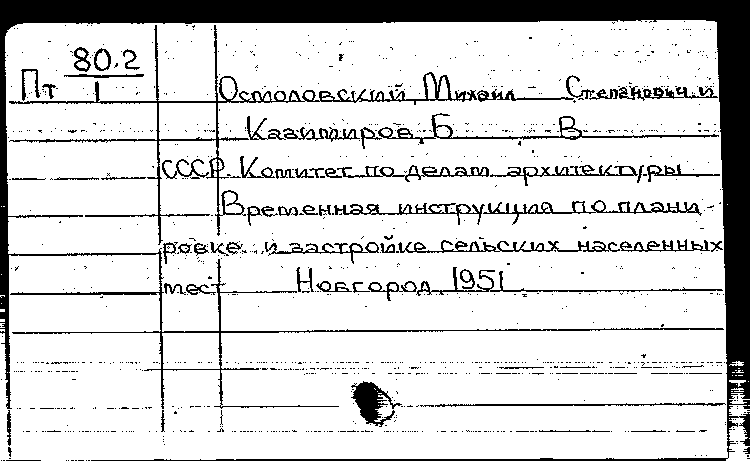 80.2
Пт 1
Осмоловский, Михаил Степанович и
Казимиров, Б В
СССР. Комитет по делам архитектуры
Временная инструкция по плани-
ровке и застройке сельских населенных
мест Новгород 1951